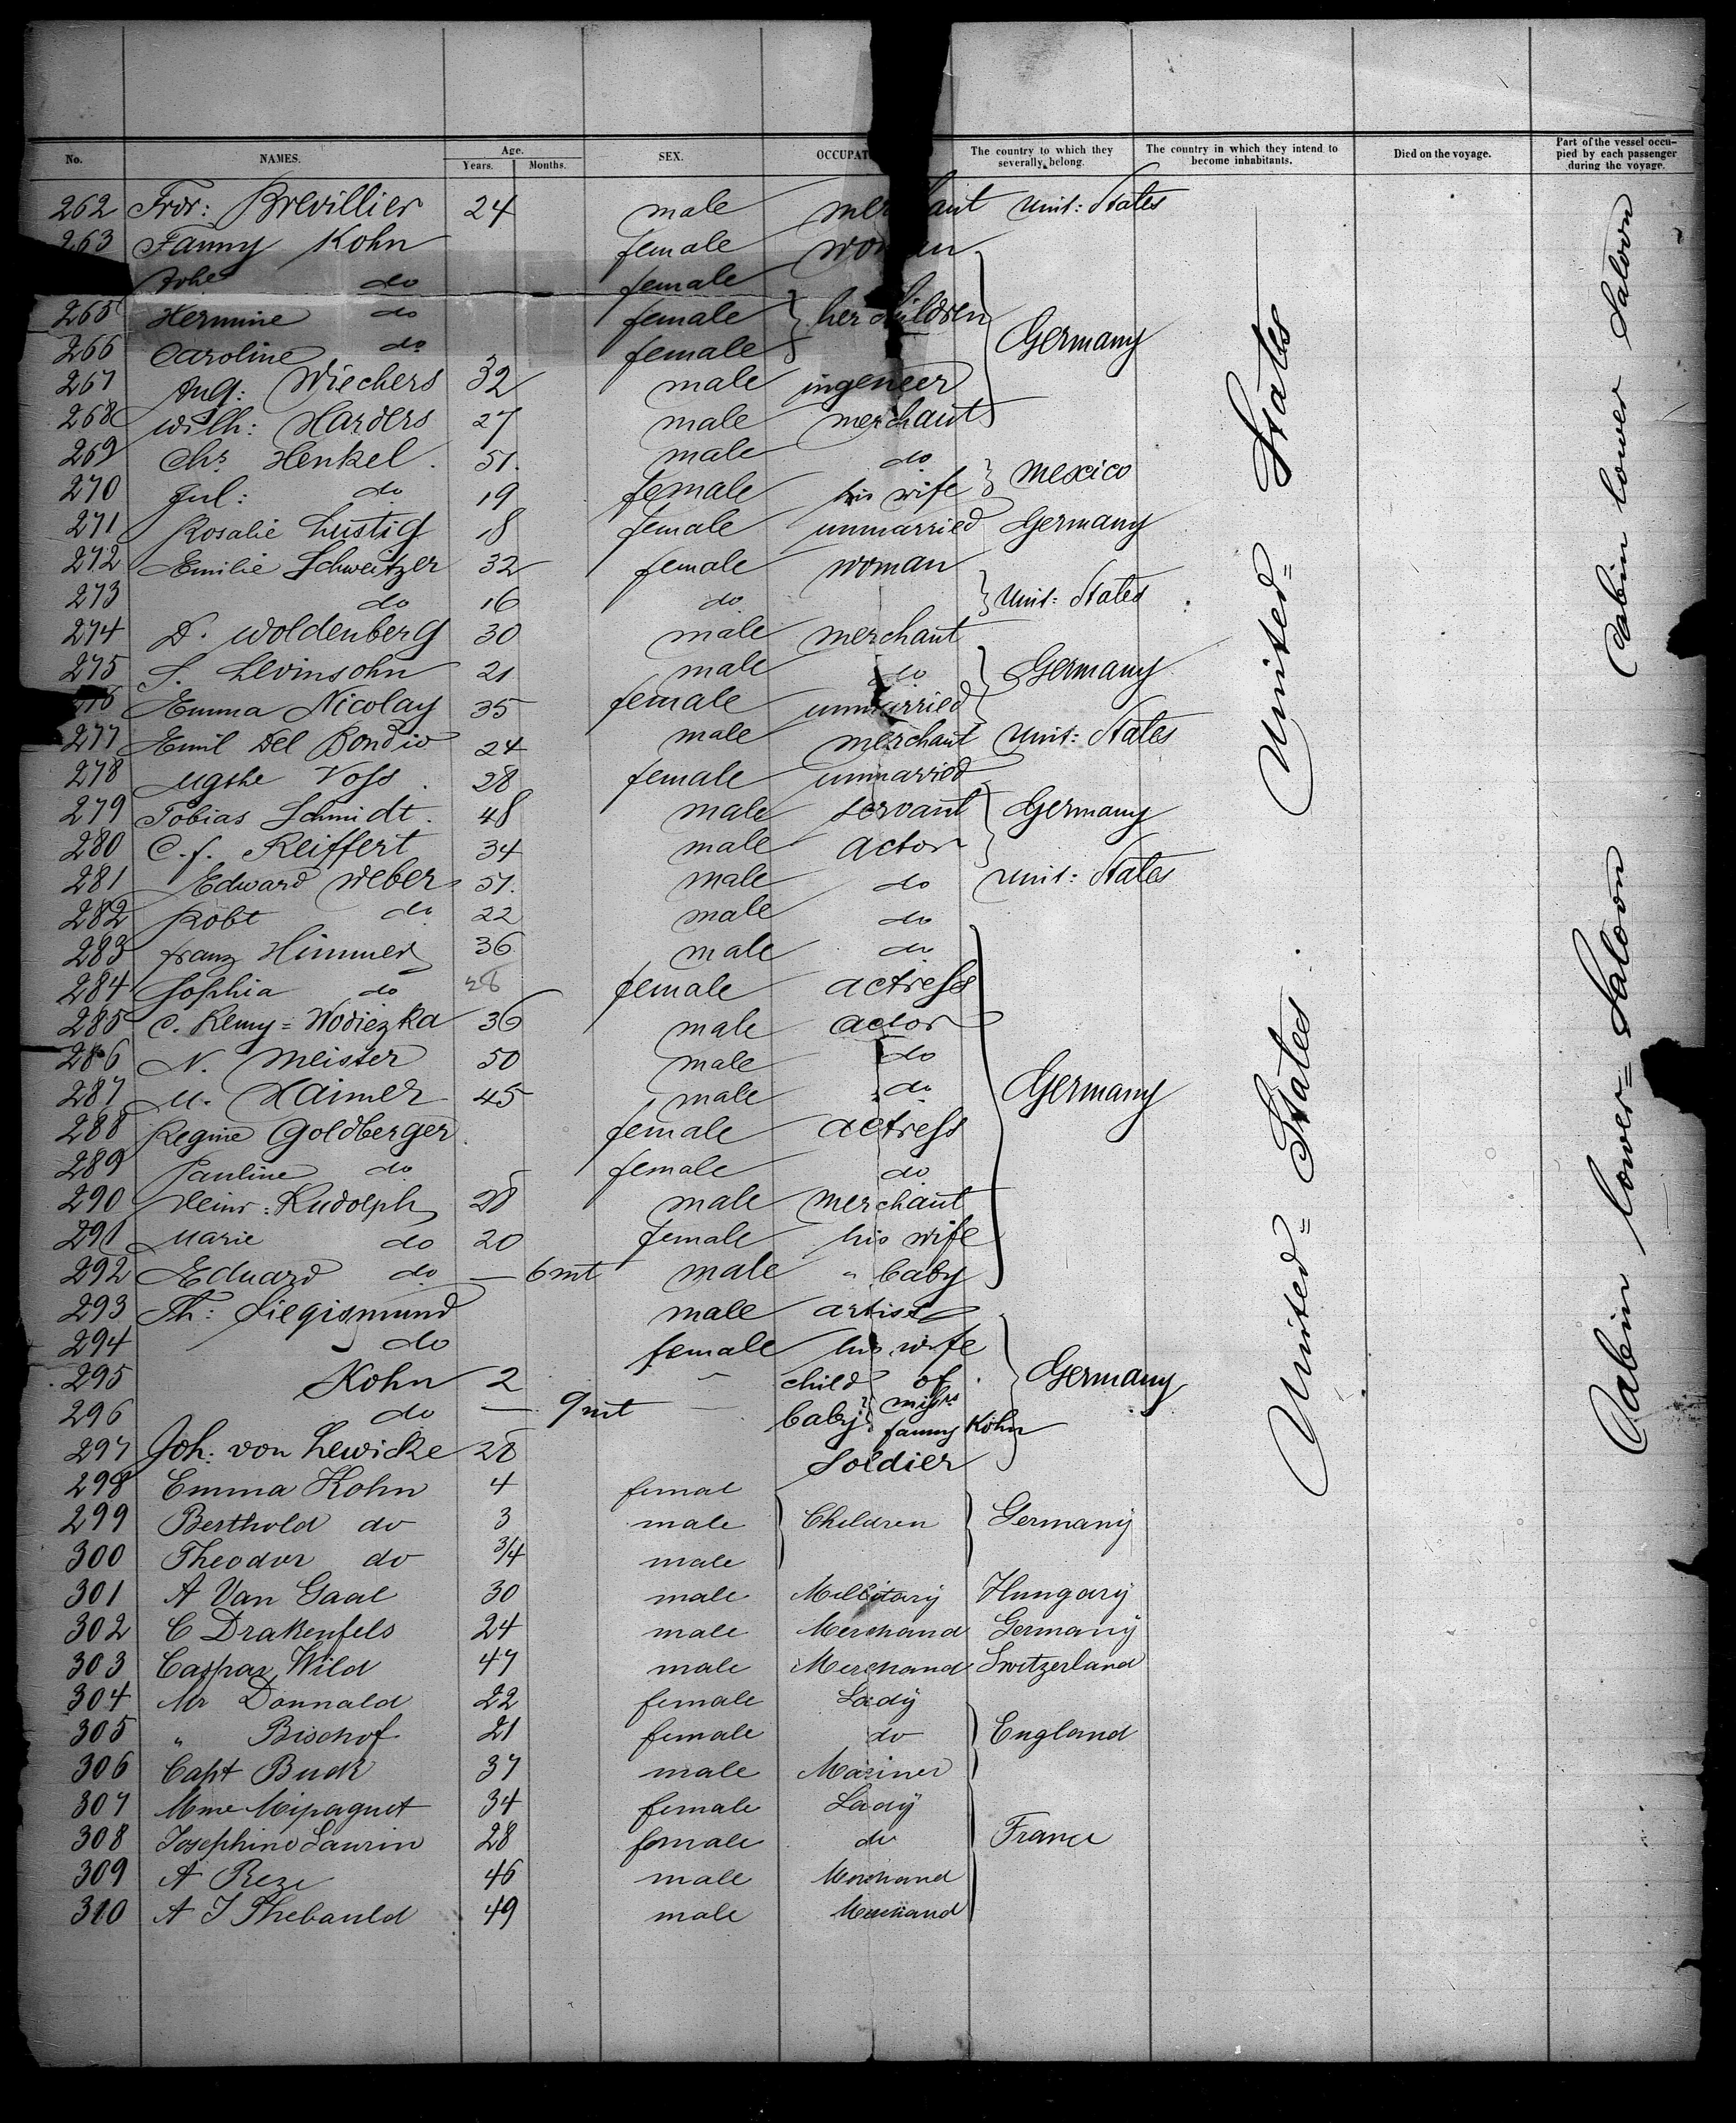 No. NAMES. Age. Years. Months. SEX. OCCUPAT The country to which they severally belong. The country in which they intend to become inhabitants. Died on the voyage. Part of the vessel occupied by each passenger during the voyage.
262 Frdr: Brevillier 24 male merchant Unit: States
263 Fanny Kohn female woman
do female
265 Hermine do female } her children
266 Caroline do female Germany
267 Aug: Wiechers 32 male ingeneer
268 Wilh: Harders 27 male merchant
269 Chs Henkel 51. male do
270 Jul: do 19 female his wife } Mexico
271 Rosalie Lustig 18 female unmarried Germany
272 Emilie Schweitzer 32 female woman
273 do 16 do } Unit: States
274 D. Woldenberg 30 male merchant
275 S. Levinsohn 21 male do Germany
276 Emma Nicolay 35 female unmarried
277 Emil Del Bondio 24 male merchant Unit: States
278 Mgthe Voss 28 female unmarried
279 Tobias Schmidt. 48 male servant Germany
280 C. f. Reiffert 34 male actor
281 Edward Weber 51. male do Unit: States
282 Robt do 22 male do
283 franz Himmer 36 male do
284 Sophia do 28 female actress
285 C. Remy=Wodiezka 36 male actor
286 N. Meister 50 male do
287 M. Haimer 45 male do Germany
288 Regine Goldberger female actress
289 Pauline do female do
290 Heinr: Rudolph 28 male merchant
291 Marie do 20 female his wife
292 Eduard do — 6 mt male " baby
293 Th: Siegismund male artist
294 do female his wife
295 Kohn 2 child of Germany
296 do — 9 mt — baby } fanny Kohn
297 Joh: von Lewicke 28 Soldier
298 Emma Kohn 4 femal
299 Berthold do 3 male Children Germany
300 Theodor do 3/4 male
301 A Van Gaal 30 male Millitary Hungary
302 C Drakenfels 24 male Merchand Germany
303 Caspar Wild 47 male Merchand Switzerland
304 Mr Donnald 22 female Lady
305 " Bischof 21 female do England
306 Capt Buck 37 male Mariner
307 Mme 34 female Lady
308 Josephine Laurin 28 female do France
309 A Reze 46 male Merchand
310 A J Thebauld 49 male Merchand
United= States
United= States
Cabin lower Saloon
Cabin lower= Saloon